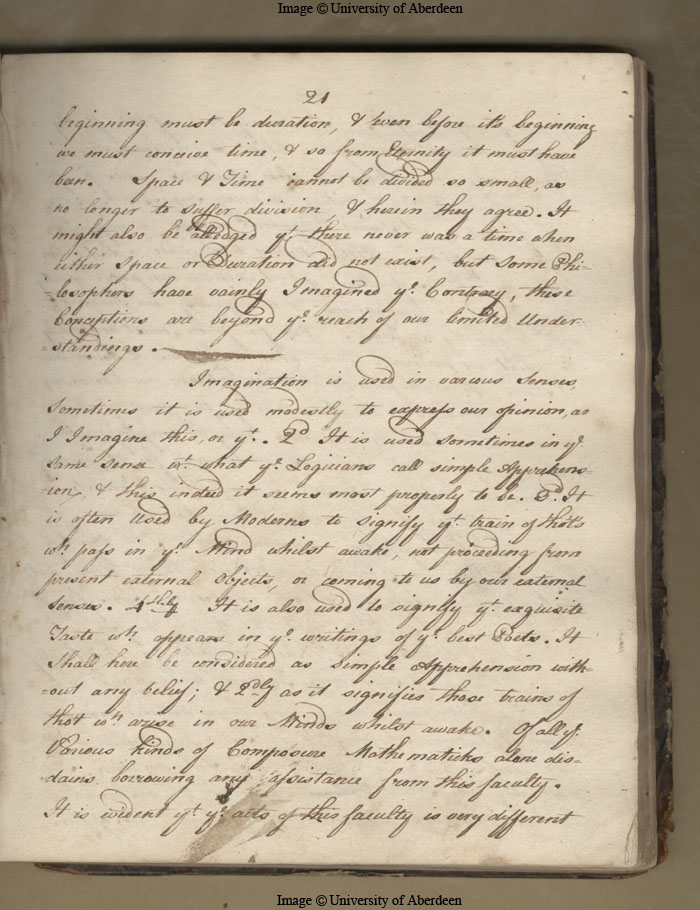 Image © University of Aberdeen
21
beginning must be duration, & even before it's beginning
we must conceive time, & so from Eternity it must have
been. Space & Time cannot be divided so small, as
no longer to suffer division, & herein they agree. It
might also be alledged yt there never was a time when
either Space or Duration did not exist, but some Phi-
-losophers have vainly Imagined ye Contrary, these
Conceptions are beyond ye reach of our limited Under-
-standings.
Imagination is used in various senses
sometimes it is used modestly to express our opinion, as
I Imagine this, or yt. 2d It is used sometimes in ye
same sense wt what ye Logicians call simple Apprehens-
ion, & this indeed it seems most properly to be. 3d. It
is often used by Moderns to signify yt train of thots
wh pass in ye Mind whilst awake, not proceeding from
present external Objects, or coming to us by our external
senses. 4thly It is also used to signify yt exquisite
Taste wh appears in ye writings of ye best Poets. It
shall here be considered as simple Apprehension with-
-out any belief; & 2dly as it signifies those trains of
thot wh arise in our Minds whilst awake. Of all ye
Various kinds of Composure Mathematicks alone dis-
dains borrowing any assistance from this faculty.
It is evident yt ye acts of this faculty is very different
Image © University of Aberdeen